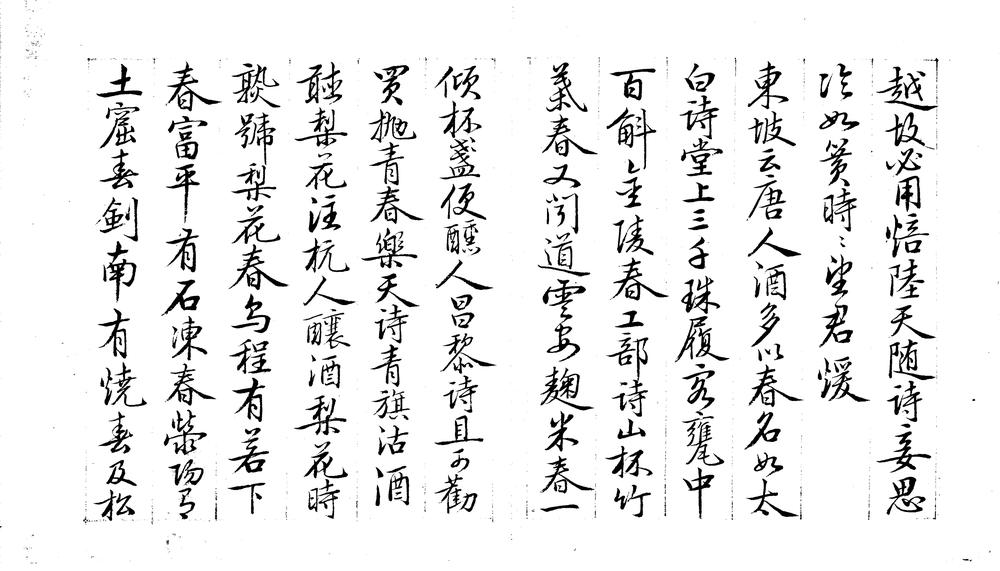 越故必用焙陸天随诗妾思
冷如簧時〻望君煖
東坡云唐人酒多以春名如太
白诗堂上三千珠履客甕中
百斛金陵春工部诗山杯竹
葉春又闻道雲安麹米春一
倾杯盏便醺人昌黎诗且可勸
買抛青春樂天诗青旗沽酒
聴梨花注杭人釀酒梨花時
熟號梨花春乌程有若下
春富平有石凍春滎陽有
土窟春劍南有燒春及松